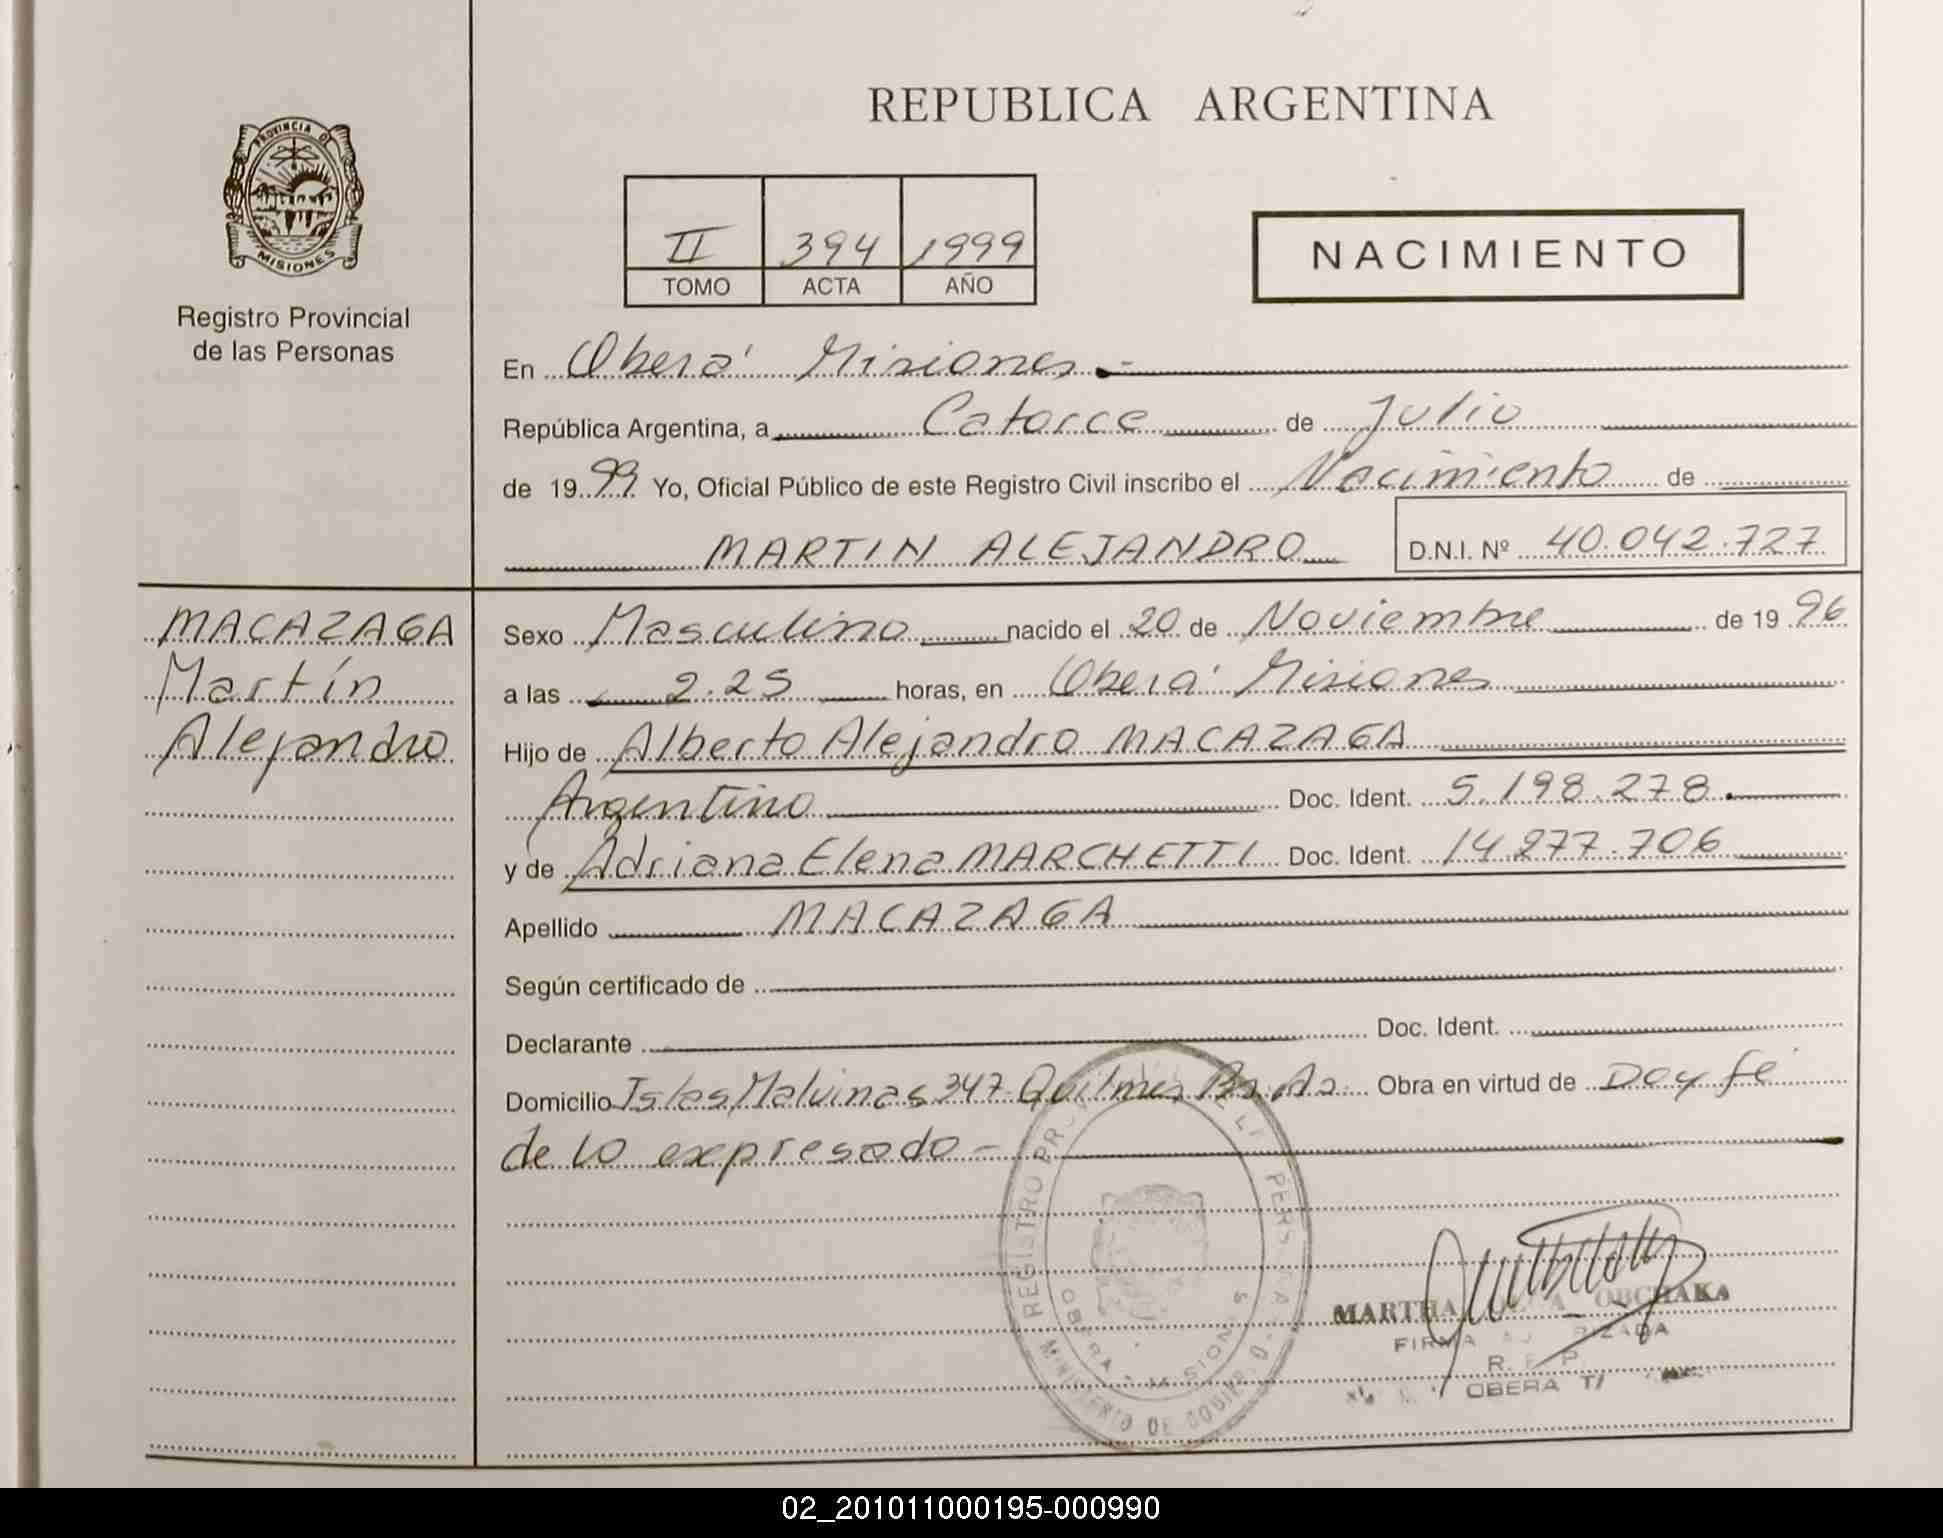 REPUBLICA ARGENTINA
PROVINCIA DE
MISIONES
Registro Provincial
de las Personas
II 394 1999
TOMO ACTA AÑO
NACIMIENTO
En Oberá Misiones.-
República Argentina, a Catorce de Julio
de 1999 Yo, Oficial Público de este Registro Civil inscribo el Nacimiento de
MARTIN ALEJANDRO D.N.I. Nº 40.042.727
MACAZAGA
Martín
Alejandro
Sexo Masculino nacido el 20 de Noviembre de 1996
a las 2.25 horas, en Oberá Misiones
Hijo de Alberto Alejandro MACAZAGA
Argentino Doc. Ident. 5.198.278.
y de Adriana Elena MARCHETTI Doc. Ident. 14.277.706
Apellido MACAZAGA
Según certificado de
Declarante Doc. Ident.
Domicilio Islas Malvinas 347 Quilmes Bs. As. Obra en virtud de Doy fe
de lo expresado-
REGISTRO
MINISTERIO DE
OBERA
MARTHA
FIRMA
OBERA
02_201011000195-000990